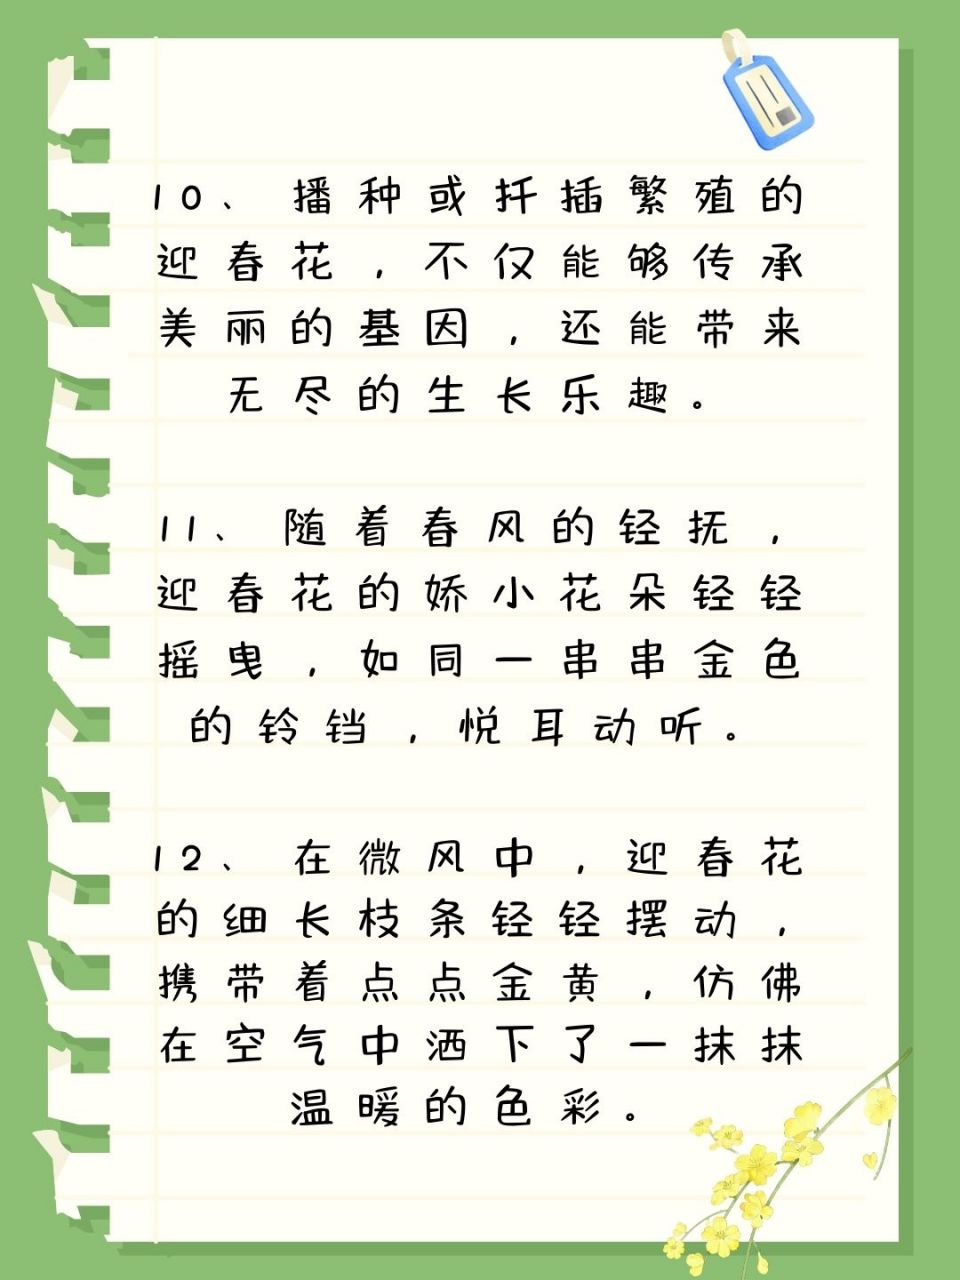 10、播种或扦插繁殖的
迎春花，不仅能够传承
美丽的基因，还能带来
无尽的生长乐趣。
11、随着春风的轻抚，
迎春花的娇小花朵轻轻
摇曳，如同一串串金色
的铃铛，悦耳动听。
12、在微风中，迎春花
的细长枝条轻轻摆动，
携带着点点金黄，仿佛
在空气中洒下了一抹抹
温暖的色彩。